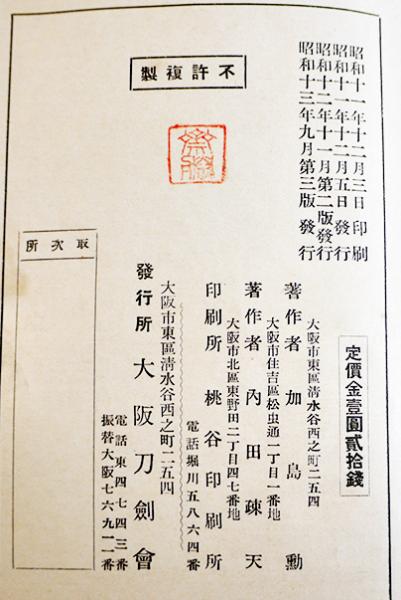 昭和十一年十二月三日印刷
昭和十一年十二月五日發行
昭和十二年十一月第二版發行
昭和十三年九月第三版發行
不許複製
定價金壹圓貳拾錢
大阪市東區清水谷西之町二五四
著作者 加島勳
大阪市住吉區松虫通一丁目一番地
著作者 內田疎天
大阪市北區東野田二丁目四七番地
印刷所 桃谷印刷所
電話堀川五八六四番
大阪市東區清水谷西之町二五四
發行所 大阪刀劍會
電話東四七四三番
振替大阪七六九一一番
取次所